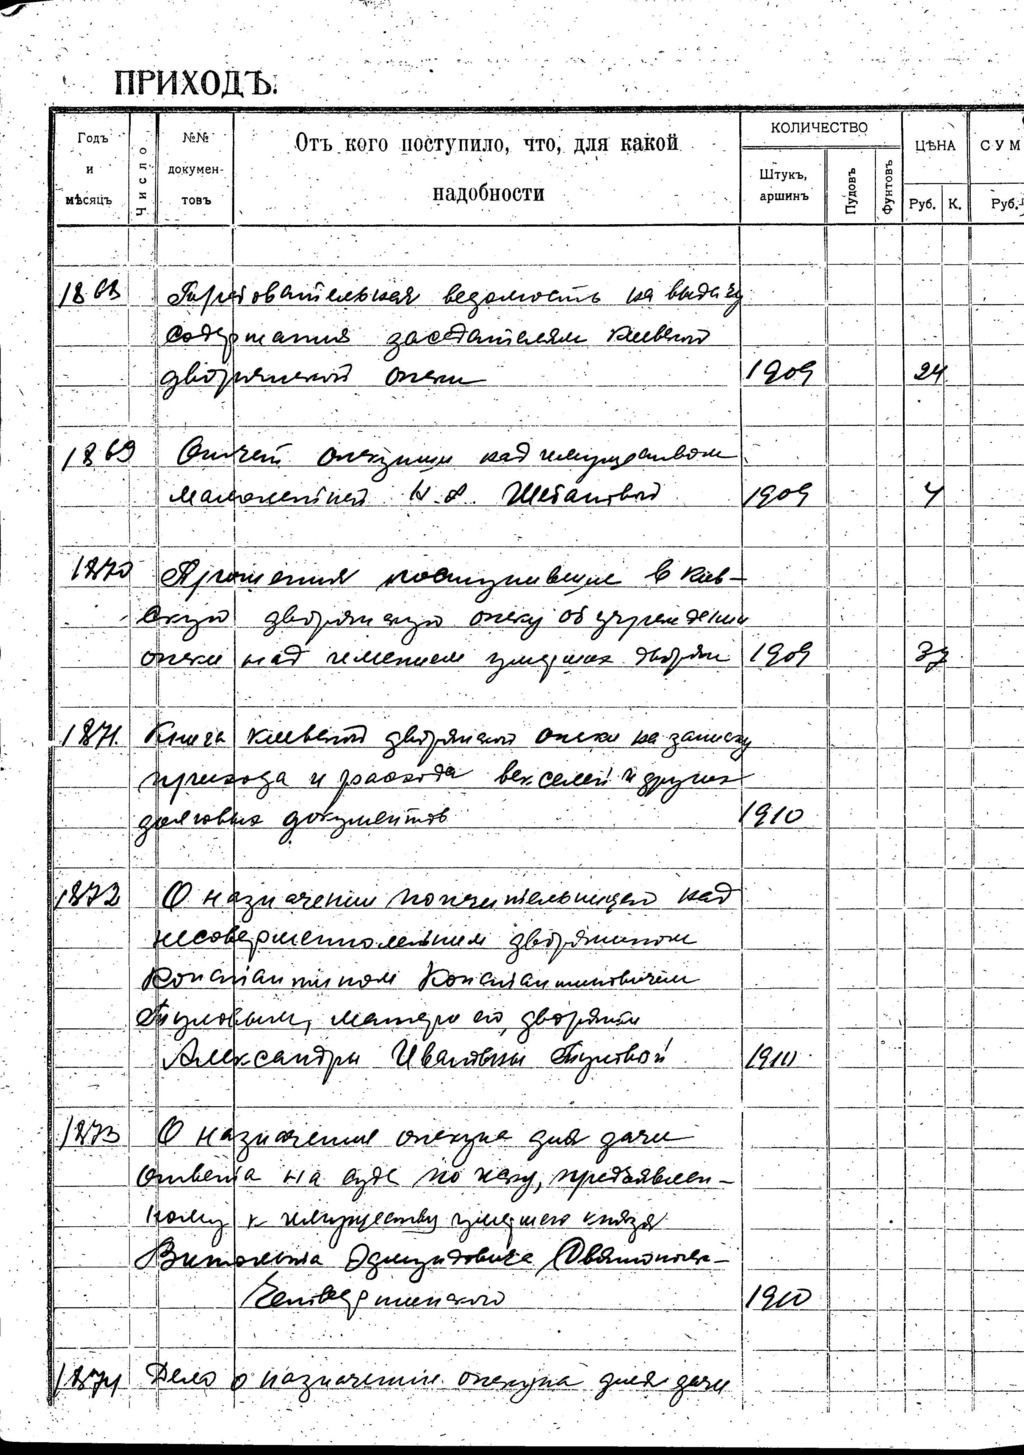 ПРИХОДЪ.
Годъ и мѣсяцъ Число №№ документовъ Отъ кого поступило, что, для какой надобности КОЛИЧЕСТВО Штукъ, аршинъ Пудовъ Фунтовъ ЦѢНА Руб. К. СУМ Руб.
1868 Требовательная ведомость на выдачу
содержания заседателям Киевской
дворянской опеки 1909 24
1869 Отчет опекунши над имуществом
малолетней Н. Ф. Шебановой 1909 4
1870 Прошения поступившие в Киев-
скую дворянскую опеку об учреждении
опеки над имением умерших дворян 1909 37
1871. Книга киевской дворянской опеки на записку
прихода и расхода векселей и других
долговых документов 1910
1872 О назначении попечительницей над
несовершеннолетним дворянином
Константином Константиновичем
матери его, дворянки
Александры Ивановны 1910
1873 О назначении опекуна для дачи
ответа на суде по иску, предъявлен-
ному к имуществу умершего князя
Витольта Эдмундовича Святополк-
Четвертинского 1910
1874 Дело о назначении опекуна для дачи